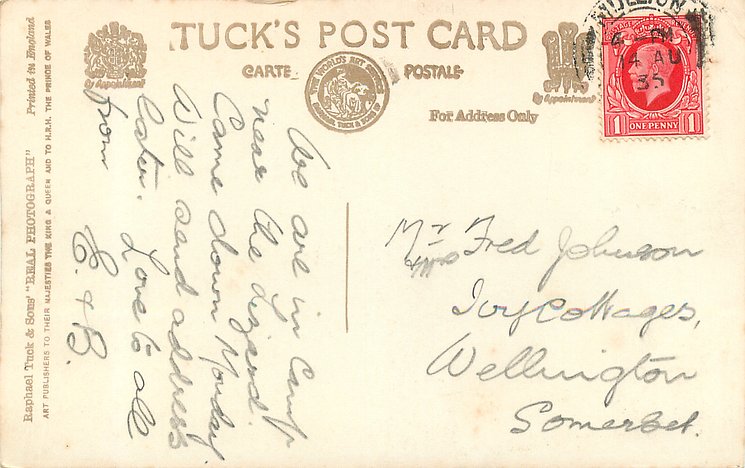 TUCK'S POST CARD
CARTE POSTALE
By Appointment
THE WORLD'S ART SERVICE
RAPHAEL TUCK & SONS LTD
By Appointment
For Address Only
MULLION
14 AU
35
ONE PENNY
1 1
Raphael Tuck & Sons' "REAL PHOTOGRAPH" Printed in England
ART PUBLISHERS TO THEIR MAJESTIES THE KING & QUEEN AND TO H.R.H. THE PRINCE OF WALES
We are in Camp
near the Lizard.
Came down Monday
Will send address
later. Love to all
from E. & B.
Mr & Mrs Fred Johnson
Ivy Cottages,
Wellington
Somerset.